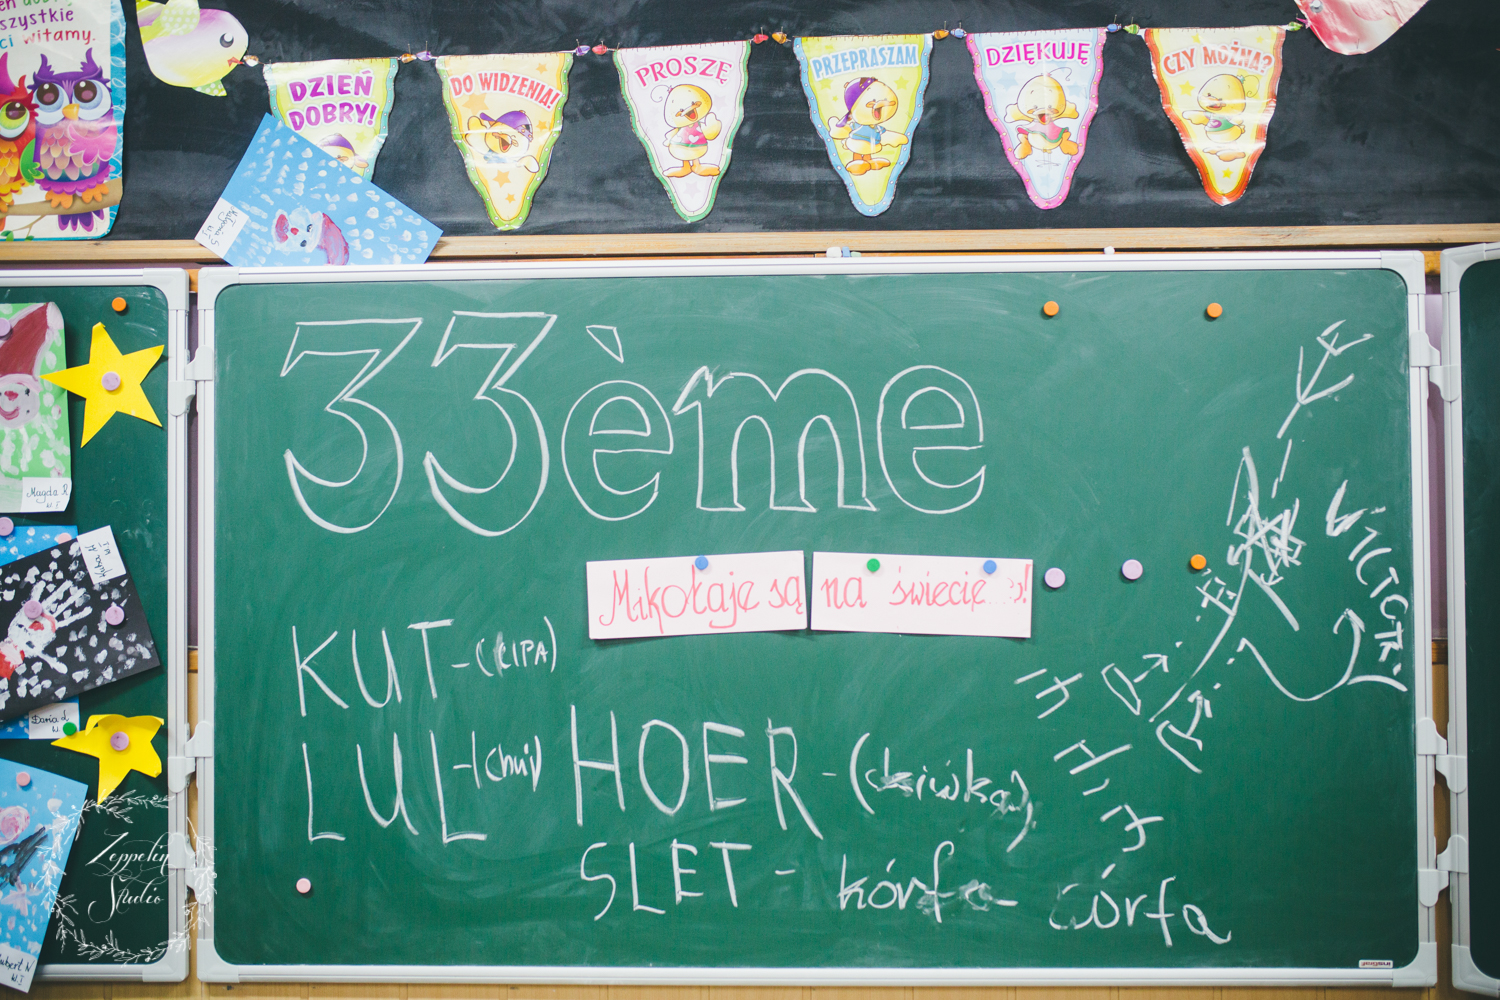 szystkie
ci witamy.
DZIEŃ DOBRY!
DO WIDZENIA!
PROSZĘ
PRZEPRASZAM
DZIĘKUJĘ
CZY MOŻNA?
33ème
Mikołaje są na świecie
KUT - (CIPA)
LUL - (Chuj) HOER - (dziwka)
SLET - kórfa - córfa
Magda R
kl. I
Daria L
Zeppelin
Studio